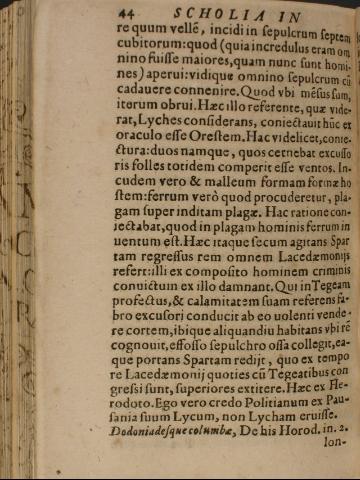 44 SCHOLIA IN
re quum vellē, incidi in sepulcrum septem
cubitorum:quod (quia incredulus eram om
nino fuisse maiores,quam nunc sunt homi-
nes) aperui:vidique omnino sepulcrum cū
cadauere connenire. Quod vbi mēsus sum,
iterum obrui. Hæc illo referente, quæ vide-
rat, Lyches considerans, coniectauit hūc ex
oraculo esse Orestem. Hac videlicet, conie-
ctura: duos namque, quos cernebat excusso
ris folles totidem comperit esse ventos. In-
cudem vero & malleum formam formæ ho
stem: ferrum verò quod procuderetur, pla-
gam super inditam plagæ. Hac ratione con-
iectabat, quod in plagam hominis ferrum in
uentum est. Hæc itaque secum agitans Spar
tam regressus rem omnem Lacedæmonijs
refert: illi ex composito hominem criminis
conuictum ex illo damnant. Qui in Tegeam
profectus, & calamitatem suam referens fa-
bro excusori conducit ab eo uolenti vende-
re cortem, ibique aliquandiu habitans vbi rē
cognouit, effosso sepulchro ossa collegit, ea-
que portans Spartam redijt, quo ex tempo
re Lacedæmonij quoties cū Tegeatibus con
gressi sunt, superiores extitere. Hæc ex He-
rodoto. Ego vero credo Politianum ex Pau-
sania suum Lycum, non Lycham eruisse.
Dodoniadesque columbæ, De his Horod. in. 2.
lon-